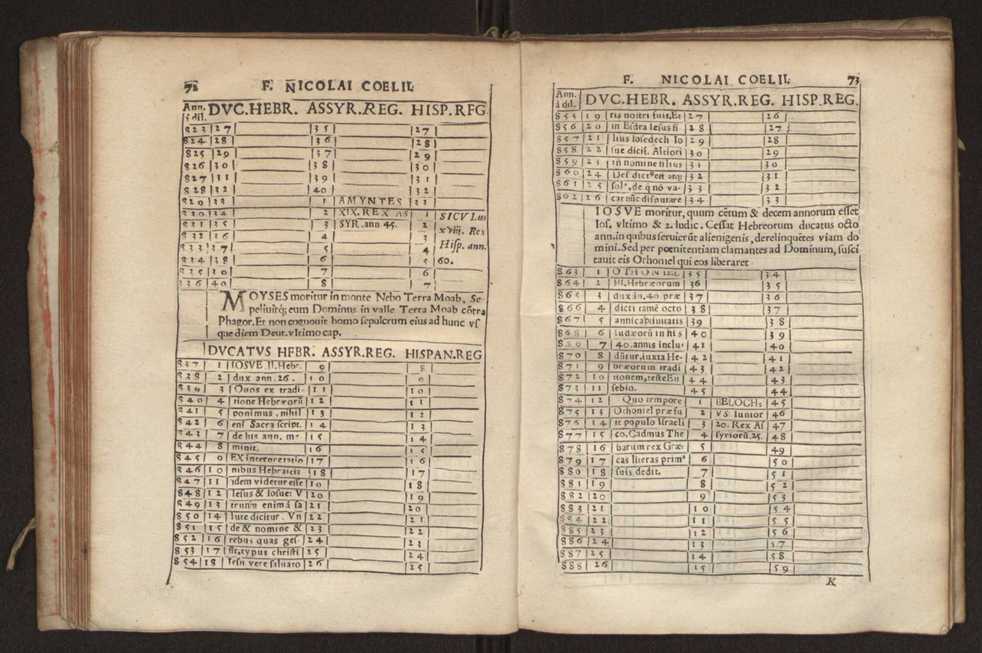 72 F. NICOLAI COELII.
Ann. á dil. DVC.HEBR. ASSYR.REG. HISP.REG
823 27 35 27
824 28 36 28
825 29 37 29
826 30 38 30
827 31 39 31
828 32 40 32
829 33 1 AMYNTES
830 34 2 XIX. REX AS 1 SICVLus
831 35 3 SYR. ann 45. 2 xviij. Rex
832 36 4 3 Hisp. ann.
833 37 5 4 60.
834 38 6 5
835 39 7 6
836 40 8 7
MOYSES moritur in monte Nebo Terra Moab, Se
peliuitq; eum Dominus in valle Terra Moab cõtra
Phagor. Et non cognouit homo sepulcrum eius ad hunc vs
que diem Deut. vltimo cap.
DVCATVS HEBR. ASSYR.REG. HISPAN.REG
837 1 IOSVE II. Hebr. 9 8
838 2 dux ann. 26. 10 9
839 3 Quos ex tradi- 11 10
840 4 tione Hebræorũ 12 11
841 5 ponimus, nihil 13 12
842 6 eni Sacra script. 14 13
843 7 de his ann. me 15 14
844 8 minit. 16 15
845 9 EX interpretatio 17 16
846 10 nibus Hebraicis 18 17
847 11 idem videtur esse 19 18
848 12 Iesus & Iosue: V 20 19
849 13 trunq enim á sa 21 20
850 14 lute dicitur. Vn 22 21
851 15 de & nomine & 23 22
852 16 rebus quas ges- 24 23
853 17 sit, typus christi 25 24
854 18 Iesu vere saluato 26 25
F. NICOLAI COELII. 73
Ann. á dil. DVC.HEBR. ASSYR.REG. HISP.REG.
855 19 ris nostri fuit, Et 27 26
856 20 in Esdra Iesus fi 28 27
857 21 lius Iosedech Io 29 28
858 22 sue dicit. Altiori 30 29
859 23 in nomine filius 31 30
860 24 Dei dictus est any 32 31
861 25 33 32
862 26 carnũc disputare 34 33
IOSVE moritur, quum cẽtum & decem annorum esset
Ios. vltimo & 2. Iudic. Cessat Hebreorum ducatus octo
ann. in quibus seruierũt alienigenis, derelinquẽtes viam do
mini. Sed per pœnitentiam clamantes ad Dominum, susci
tauit eis Othoniel qui eos liberaret
863 1 OTHONIEL 35 34
864 2 III. Hebræorum 36 35
865 3 dux in. 40. præ 37 36
866 4 dicti tamẽ octo 38 37
867 5 anni captiuitatis 39 38
868 6 Iudæorũ in his 40 39
869 7 40. annis inclu- 41 40
870 8 dũtur, iuxta He- 42 41
871 9 bræorum tradi 43 42
872 10 tionem, teste Eu 44 43
873 11 sebio. 45 44
874 12 Quo tempore 1 BELOCHs 45
875 13 Othoniel præfu 2 VS Iunior 46
876 14 it populo Israeli 3 20. Rex As 47
877 15 co, Cadmus The 4 syriorũ. 25. 48
878 16 barum rex Græ 5 49
879 17 cas literas primus 6 50
880 18 suis dedit. 7 51
881 19 8 52
882 20 9 53
883 21 10 54
884 22 11 55
885 23 12 56
886 24 13 57
887 25 14 58
888 26 15 59
K